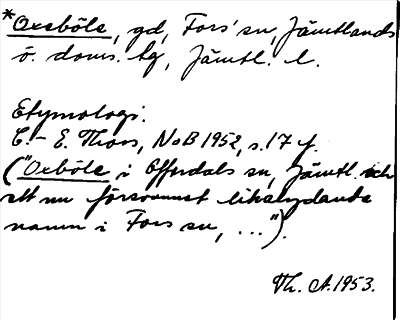 *Oxeböle, gd, Fors' sn, Jämtlands
ö. doms. tg, Jämtl. l.
Etymologi.
C.-E. Thors, NoB 1952, s. 17 f.
("Oxböle i Offerdals sn, Jämtl. och
ett nu försvunnet likalydande
namn i Fors sn, ...").
Th. A. 1953.